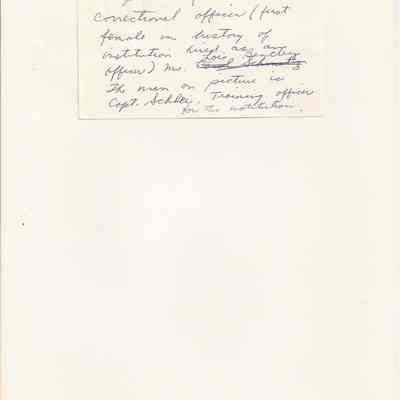 correctional officer (first
female in history of
institution hired as an
Lois Bentley
officer) Ms.
The man on picture is
Capt. Schlei, Training officer
for the institution.